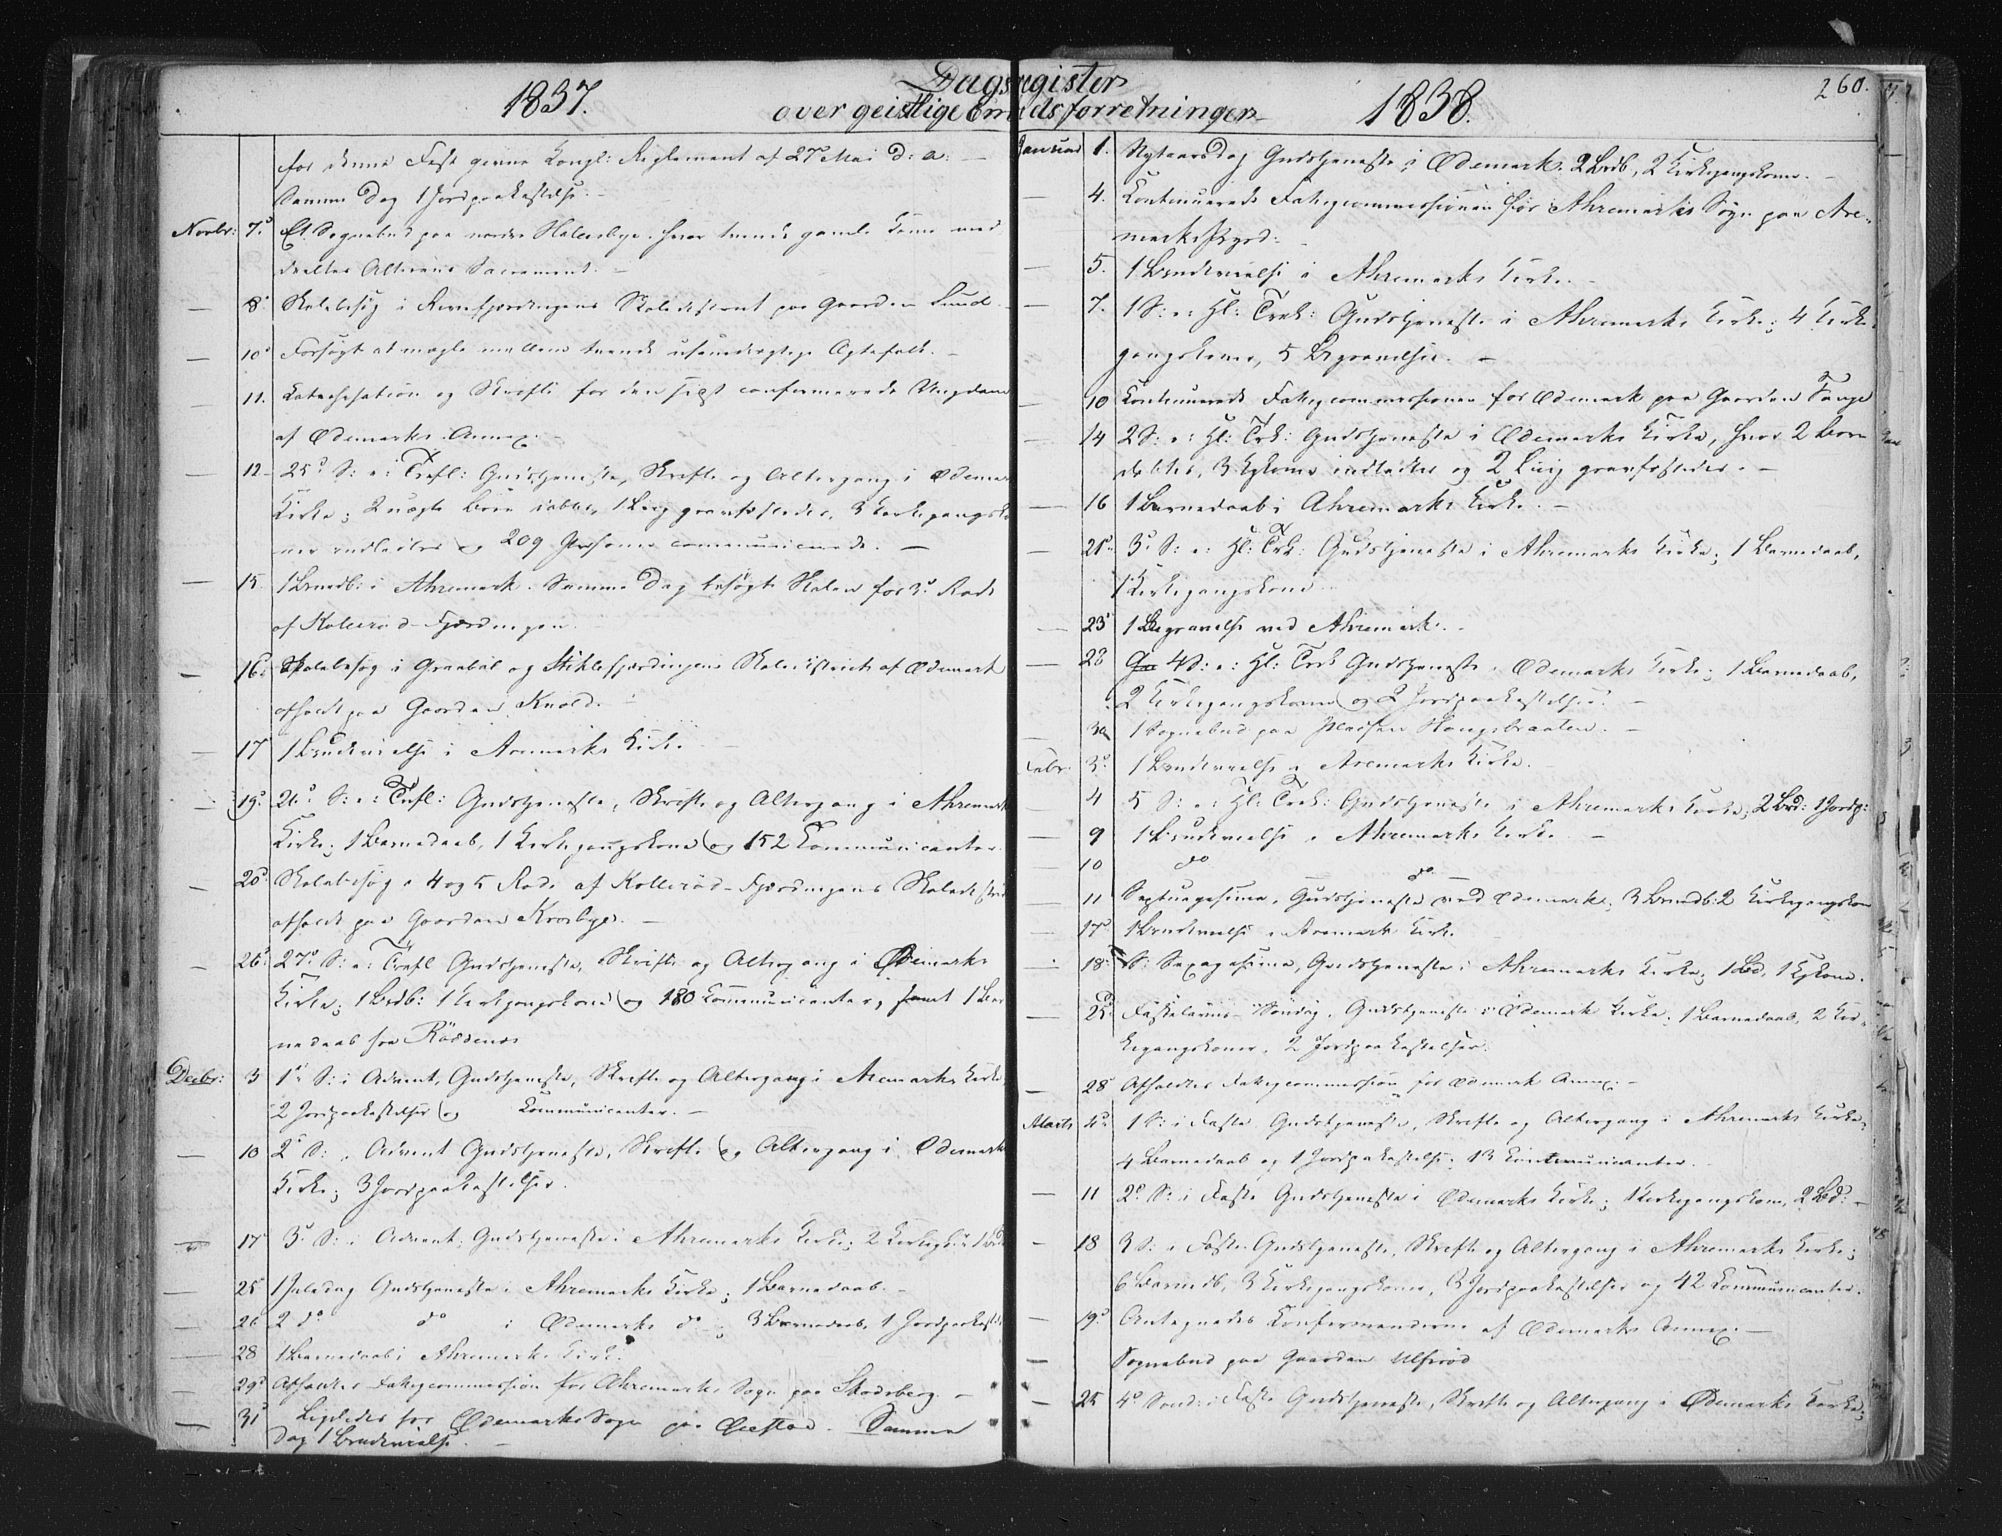 1837.
Dagsregister
over geistlige Embedsforretninger
1838.
260.
for denne Fest givne Kongl: Reglement af 27de Mai d: a:
Samme Dag 1 Jordpaakastelse.
Novbr: 7de Et Sognebud paa nordre Holmsbye, hvor tvende gamle Koner med
deeltes Alterens Sacrament.
8de Skolebesøg i Skoledistrict paa Gaarden Lund.
10de Forsøgt at mægle mellem tvende usamdrægtige Ægtefolk.
11. Katechisation og Skrifte for den sidst confirmerede Ungdom
af Ødemarks Annex.
12 25de S: e: Trefl: Gudstjeneste, Skrifte og Altergang i Ødemarks
Kirke; 2 uægte Børn døbte, 1 Liig gravfæstedes, 3 Kirkegangsko
ner indledtes og 209 Personer communicerede.
15. 1 Barnedb: i Ahremark. Samme Dag besøgte Skolen for 3de Rode
af Kollerød-Fjerdingen.
16de Skolebesøg i Graabøl og Stiklefjerdingens Skoledistrict af Ødemark
afholdt paa Gaarden Knold.
17 1 Brudevielse i Aremarks Kirke
19de 26de S: e: Trefl: Gudstjeneste, Skrifte og Altergang i Ahremark
Kirke; 1 Barnedaab, 1 Kirkegangskone og 152 Communicanter.
20de Skolebesøg i 4 og 5 Rode af Kollerød-Fjerdingens Skoledistrict
afholdt paa Gaarden Krosbye.
26de 27de S: e: Trefl Gudstjeneste, Skrifte og Altergang i Ødemarks
Kirke; 1 Brdb: 1 Kirkegangskone og 180 Communicanter, samt 1 Bar
nedaab fra Rødenes
Decbr: 3 1ste S: i Advent, Gudstjeneste, Skrifte og Altergang i Aremarks Kirke
2 Jordpaakastelser og Communicanter.
10 2de S: i Advent Gudstjeneste, Skrifte og Altergang i Ødemarks
Kirke; 3 Jordpaakastelser.
17 3de S: i Advent, Gudstjeneste i Ahremarks Kirke; 2 Kirkegk:
25de 1 Juledag Gudstjeneste i Ahremarks Kirke; 1 Barnedaab.
26 2 do do i Ødemarks do; 3 Barnedaab, 1 Jordpaakast
28 1 Barnedaab i Ahremarks Kirke.
29de Afholdtes Fattigcommission for Ahremarks Sogn paa Skodsberg.
31te Ligeledes for Ødemarks Sogn paa. Samme
Dag 1 Brudevielse.
Januar 1. Nytaarsdag Gudstjeneste i Ødemark. 2 Brdb, 2 Kirkegangskoner.
4. Continuerede Fattigcommissionen for Ahremarks Sogn paa Are-
marks Præstgrd:
5. 1 Brudevielse i Ahremarks Kirke.
7. 1 S: e: Hl: Trek: Gudstjeneste i Ahremarks Kirke; 4 Kirke
gangskoner, 5 Begravelser.
10 Continuerede Fattigcommissionen for Ødemark paa Gaarden Tange
14 2 S: e: Hl: Trk: Gudstjeneste i Ødemarks Kirke, hvor 2 Børn
døbtes, 3 Kgkoner indledtes og 2 Liig gravfæstedes.
16 1 Barnedaab i Ahremarks Kirke.
21de 3de S: e: Hl: Trk: Gudstjeneste i Ahremarks Kirke; 1 Barnedaab,
1 Kirkegangskone
23de 1 Begravelse ved Ahremark.
28 4 S: e: Hl: Trk Gudstjeneste i Ødemarks Kirke; 1 Barnedaab,
2 Kirkegangskoner og 2 Jordpaakastelser.
30 1 Sognebud paa Pladsen Haugsbraaten.
Febr. 3de 1 Brudevielse i Aremarks Kirke.
4 5 S: e: Hl: Trek: Gudstjeneste i Ahremarks Kirke; 2 Brd: 1 Jordp:
9 1 Brudevielse i Ahremarks Kirke.
10 do do
11 Septuagesima, Gudstjeneste ved Ødemark, 3 Brndb: 2 Kirkegangskon
17de 1 Brudevielse i Aremark Kirke.
18de S: Sexagesima, Gudstjeneste i Ahremarks Kirke; 1 Bd, 1 Kgkone.
25de Fastelavns-Søndag, Gudstjeneste i Ødemark Kirke; 1 Barnedaab, 2 Kir-
kegangskoner, 2 Jordpaakastelser.
28de Afholdtes Fattigcommission for Ødemark Annex.
Marts 4de 1 S: i Faste Gudstjeneste, Skrifte og Altergang i Ahremarks Kirke
4 Barnedaab og 1 Jordpaakastelse, 13 Communicanter.
11 2de S: i Faste Gudstjeneste i Ødemarks Kirke; 1 Kirkegangskone, 2 Bd:
18 3 S: i Faste Gudstjeneste, Skrifte og Altergang i Ahremarks Kirke;
6 Barnedb, 3 Kirkegangskoner, 3 Jordpaakastelser og 42 Communicanter.
19de Antegnedes Konfirmanderne af Ødemarks Annex.
Sognebud paa Gaarden Ulfsrød
25 4de Sønd: i Faste Gudstjeneste, Skrifte og Altergang i Ødemarks Kirke;